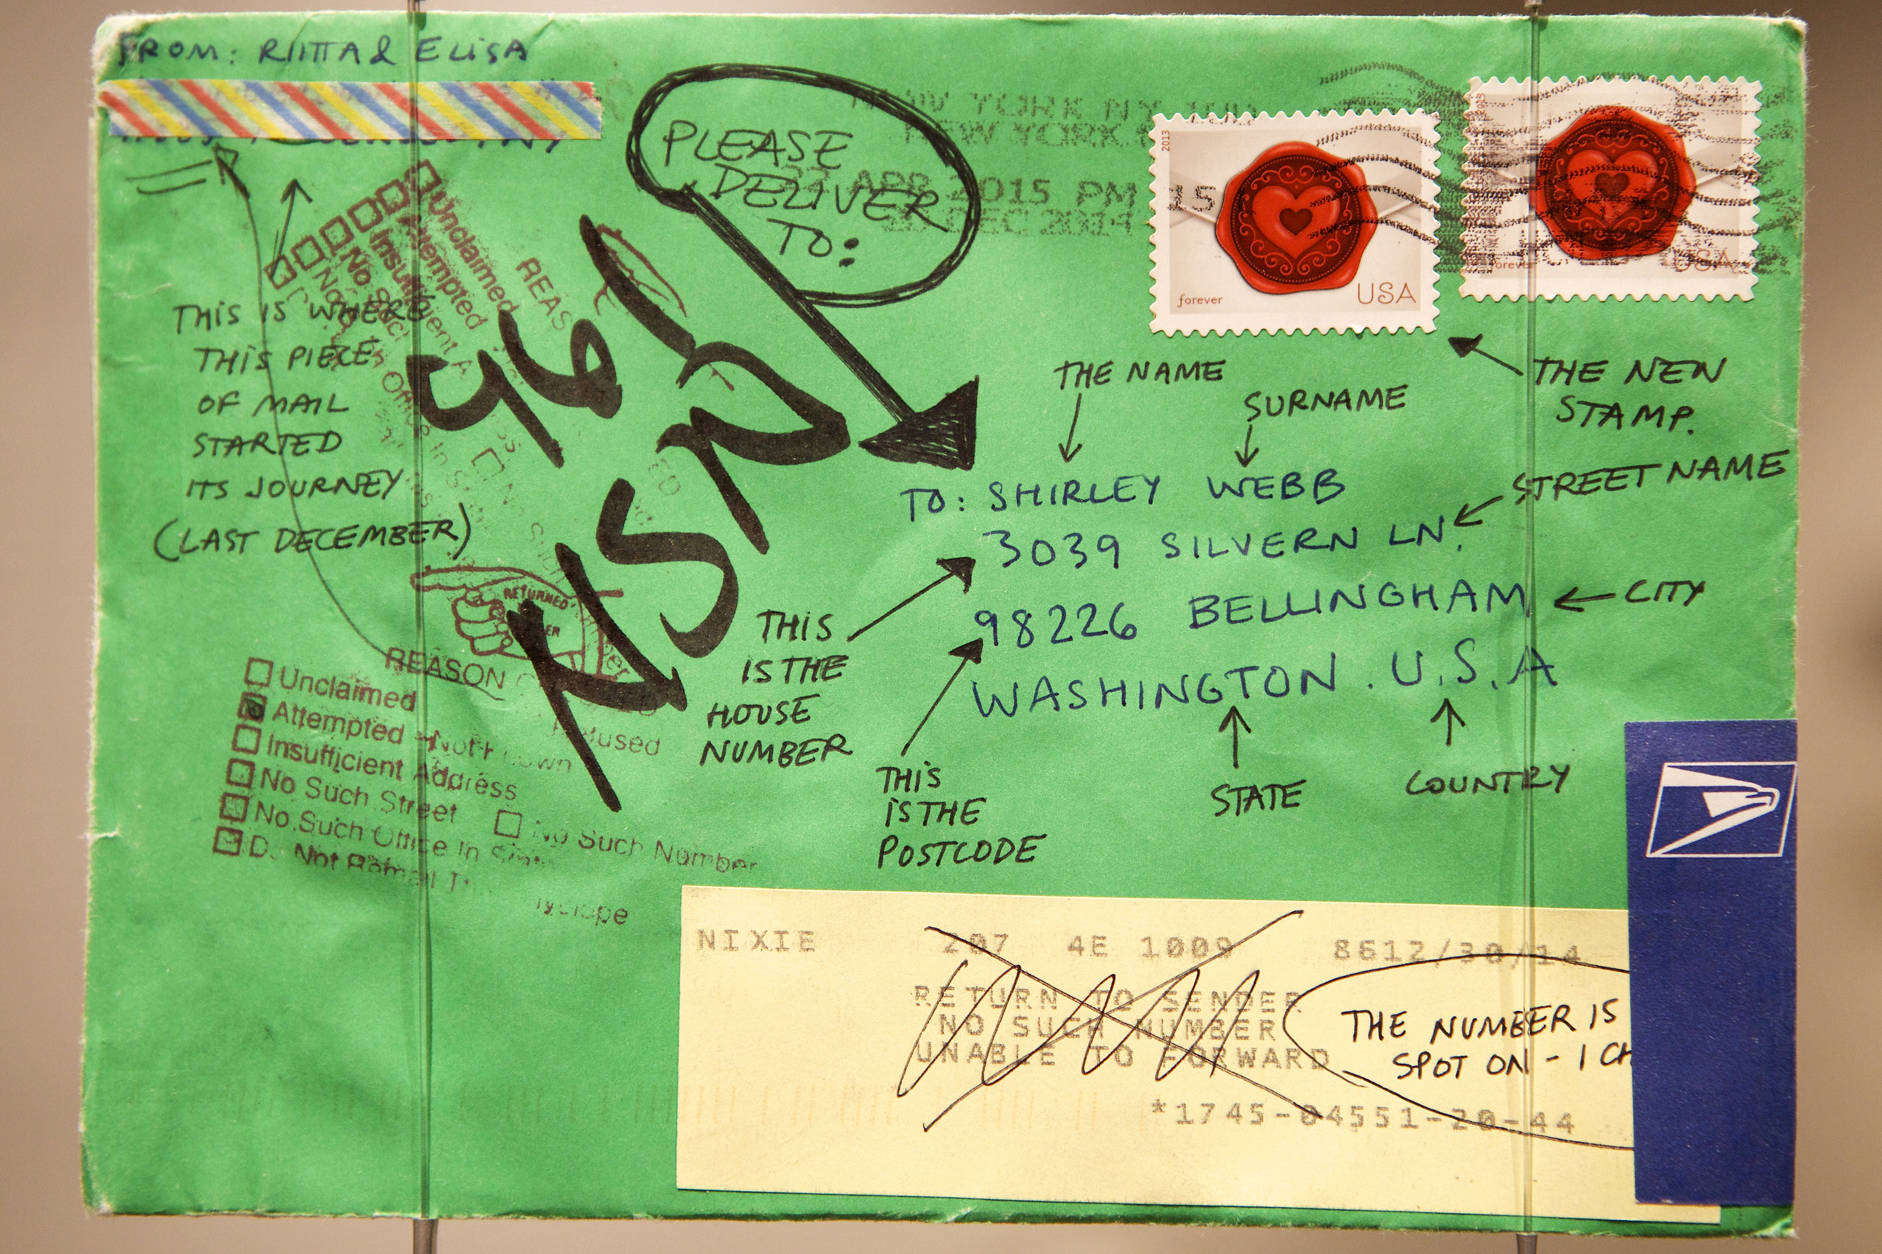 FROM: RIITTA & ELISA
PLEASE
DELIVER
TO:
NEW YORK NY 100
NEW YORK
27 APR 2015 PM 15
DEC 2014
2013
forever
USA
forever
USA
THE NEW
STAMP.
THIS IS WHERE
THIS PIECE
OF MAIL
STARTED
ITS JOURNEY
(LAST DECEMBER)
Unclaimed
Attempted
REAS
961
NSN
THE NAME
SURNAME
STREET NAME
TO: SHIRLEY WEBB
3039 SILVERN LN.
98226 BELLINGHAM
WASHINGTON. U.S.A
CITY
THIS
IS THE
HOUSE
NUMBER
THIS
IS THE
POSTCODE
STATE
COUNTRY
RETURNED
REASON
Unclaimed
Refused
Attempted - Not Known
Insufficient Address
No Such Street
No Such Number
No Such Office In State
Do Not Remail
NIXIE 207 4E 1009 8612/30/14
RETURN TO SENDER
NO SUCH NUMBER
UNABLE TO FORWARD
*1745-04551-20-44
THE NUMBER IS
SPOT ON - I CH